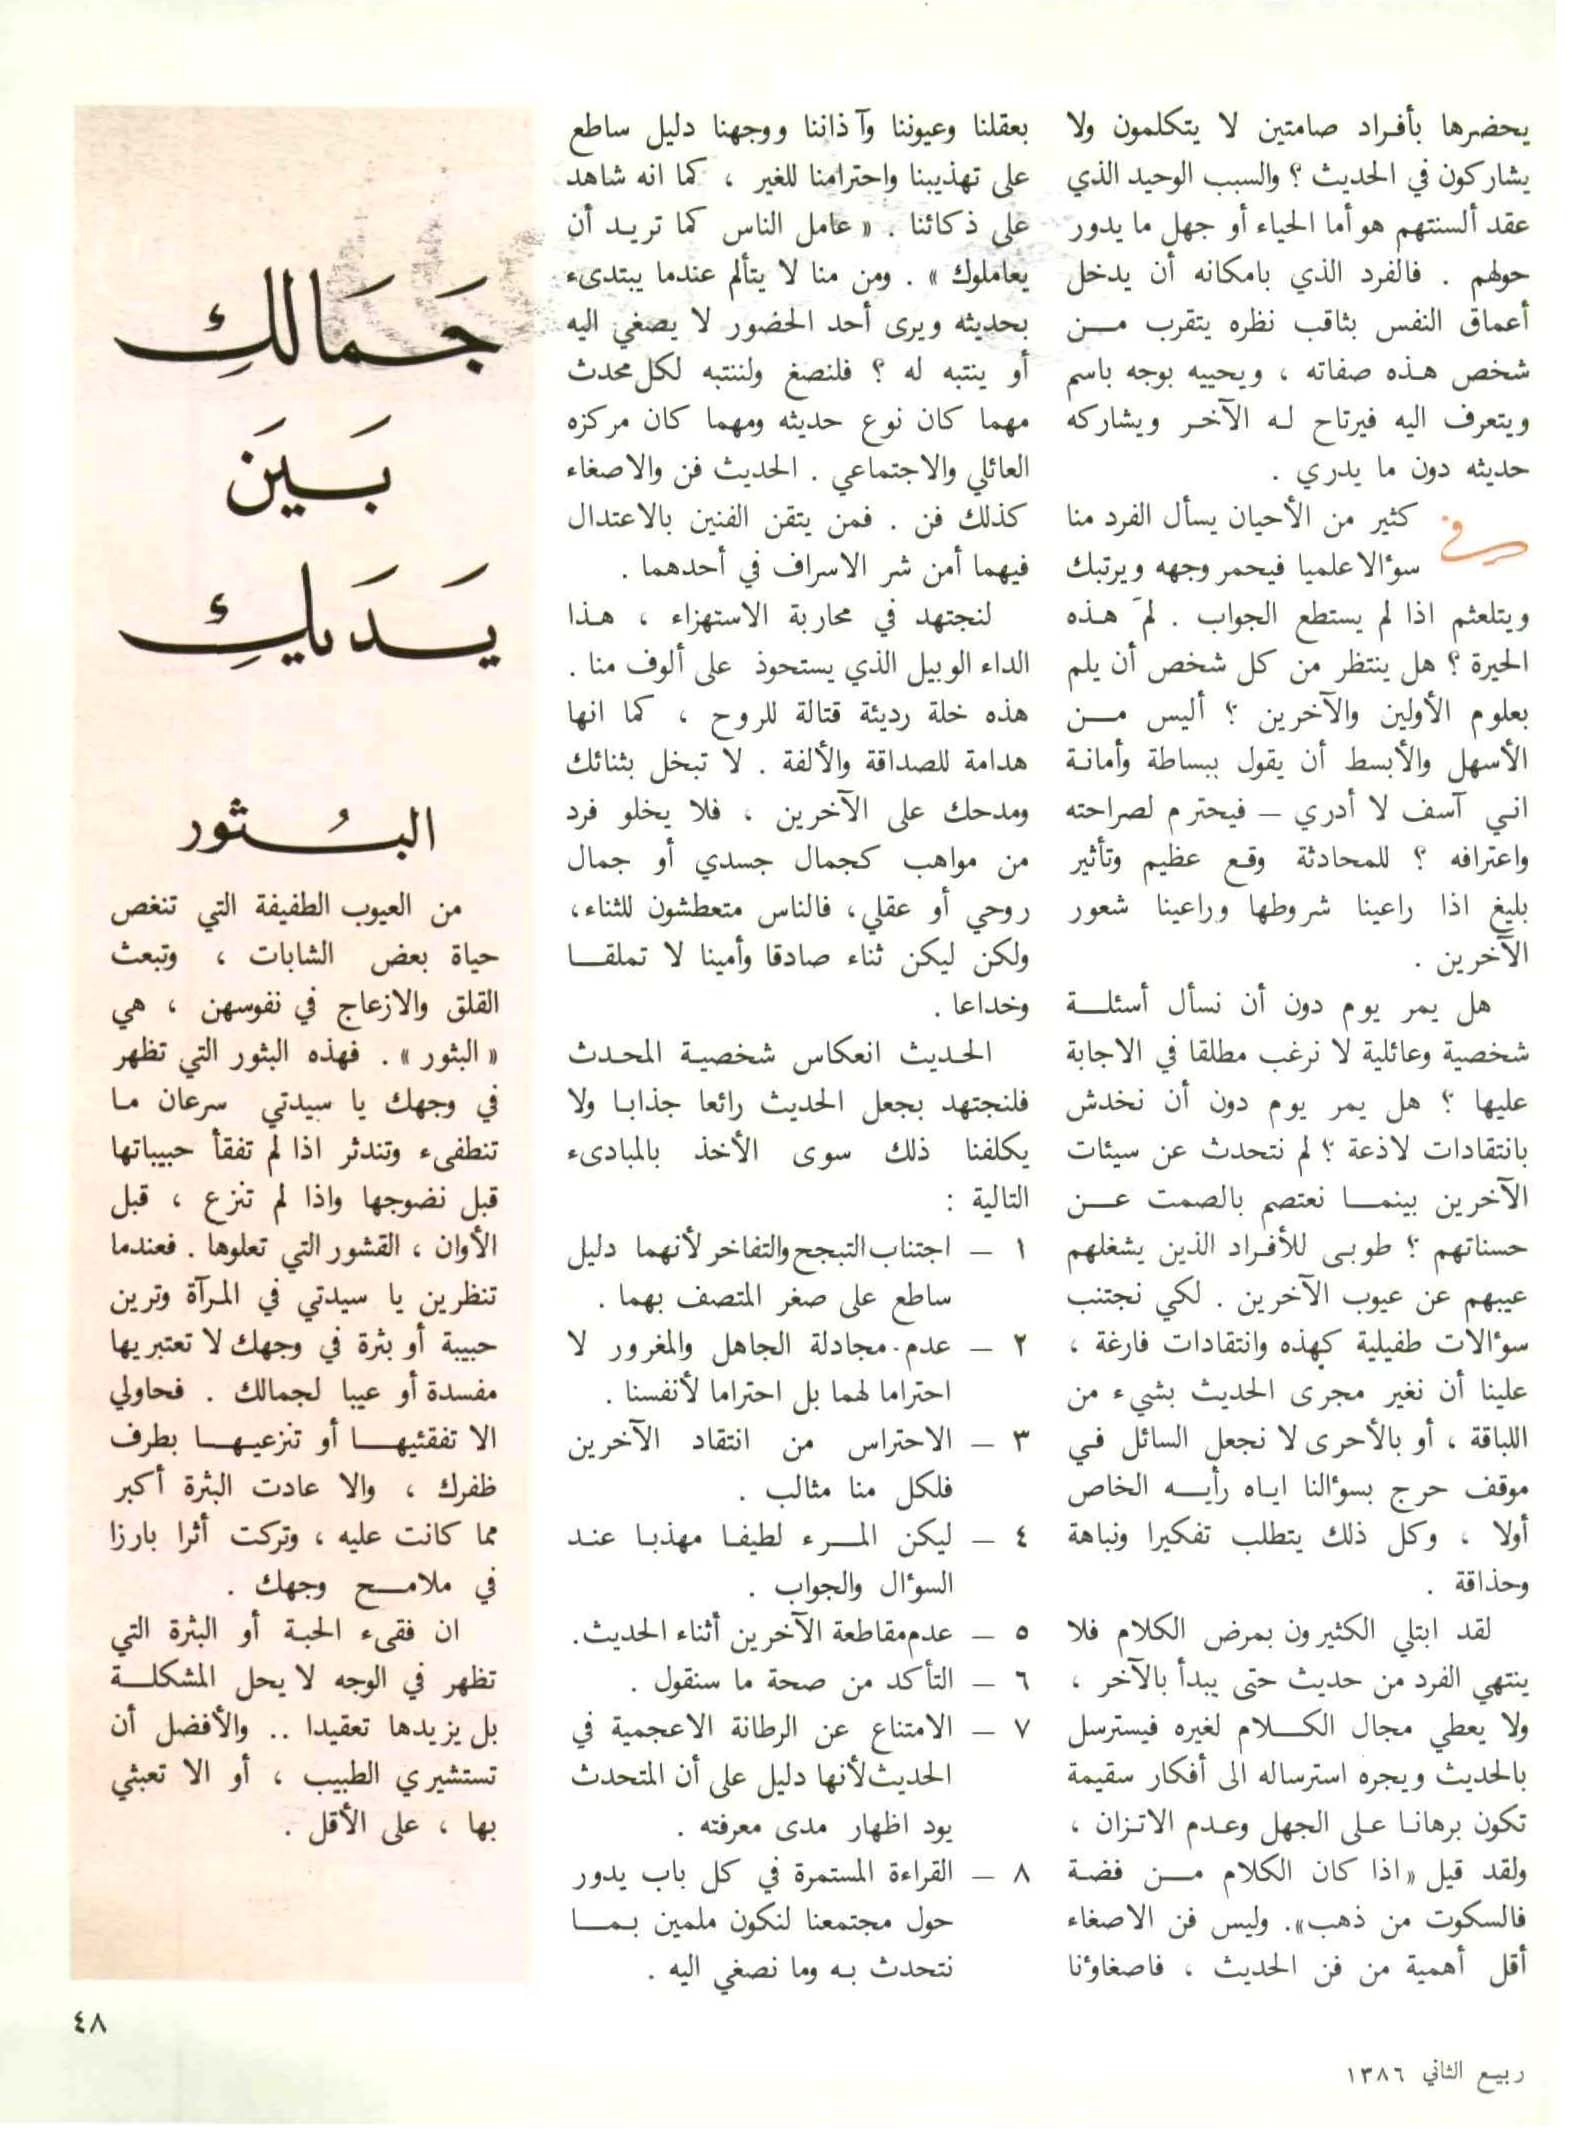 يحضرها بأفراد صامتين لا يتكلمون ولا
يشاركون في الحديث ؟ والسبب الوحيد الذي
عقد ألسنتهم هو أما الحياء أو جهل ما يدور
حولهم . فالفرد الذي بامكانه أن يدخل
أعماق النفس بثاقب نظره يتقرب من
شخص هذه صفاته ، ويحييه بوجه باسم
ويتعرف اليه فيرتاح له الآخر ويشاركه
حديثه دون ما يدري .
في كثير من الأحيان يسأل الفرد منا
سوءالا علميا فيحمر وجهه ويرتبك
ويتلعثم اذا لم يستطع الجواب . لمَ هذه
الحيرة ؟ هل ينتظر من كل شخص أن يلم
بعلوم الأولين والآخرين ؟ أليس من
الأسهل والأبسط أن يقول ببساطة وأمانة
اني آسف لا أدري – فيحترم لصراحته
واعترافه ؟ للمحادثة وقع عظيم وتأثير
بليغ اذا راعينا شروطها وراعينا شعور
الآخرين .
هل يمر يوم دون أن نسأل أسئلة
شخصية وعائلية لا نرغب مطلقا في الاجابة
عليها ؟ هل يمر يوم دون أن نخدش
بانتقادات لاذعة ؟ لم نتحدث عن سيئات
الآخرين بينما نعتصم بالصمت عن
حسناتهم ؟ طوبى للأفراد الذين يشغلهم
عيبهم عن عيوب الآخرين . لكي نجتنب
سوءالات طفيلية كهذه وانتقادات فارغة ،
علينا أن نغير مجرى الحديث بشيء من
اللباقة ، أو بالأحرى لا نجعل السائل في
موقف حرج بسوءالنا اياه رأيه الخاص
أولا ، وكل ذلك يتطلب تفكيرا ونباهة
وحذاقة .
لقد ابتلي الكثيرون بمرض الكلام فلا
ينتهي الفرد من حديث حتى يبدأ بالآخر ،
ولا يعطي مجال الكلام لغيره فيسترسل
بالحديث ويجره استرساله الى أفكار سقيمة
تكون برهانا على الجهل وعدم الاتزان ،
ولقد قيل « اذا كان الكلام من فضة
فالسكوت من ذهب». وليس فن الاصغاء
أقل أهمية من فن الحديث ، فاصغاوءنا
بعقلنا وعيوننا وآذاننا ووجهنا دليل ساطع
على تهذيبنا واحترامنا للغير ، كما انه شاهد
على ذكائنا . « عامل الناس كما تريد أن
يعاملوك » . ومن منا لا يتألم عندما يبتدىء
بحديثه ويرى أحد الحضور لا يصغي اليه
أو ينتبه له ؟ فلنصغ ولننتبه لكل محدث
مهما كان نوع حديثه ومهما كان مركزه
العائلي والاجتماعي . الحديث فن والاصغاء
كذلك فن . فمن يتقن الفنين بالاعتدال
فيهما أمن شر الاسراف في أحدهما .
لنجتهد في محاربة الاستهزاء ، هذا
الداء الوبيل الذي يستحوذ على ألوف منا .
هذه خلة رديئة قتالة للروح ، كما انها
هدامة للصداقة والألفة . لا تبخل بثنائك
ومدحك على الآخرين ، فلا يخلو فرد
من مواهب كجمال جسدي أو جمال
روحي أو عقلي، فالناس متعطشون للثناء،
ولكن ليكن ثناء صادقا وأمينا لا تملقا
وخداعا .
الحديث انعكاس شخصية المحدث
فلنجتهد بجعل الحديث رائعا جذابا ولا
يكلفنا ذلك سوى الأخذ بالمبادىء
التالية :
١ – اجتناب التبجح والتفاخر لأنهما دليل
ساطع على صغر المتصف بهما .
٢ – عدم مجادلة الجاهل والمغرور لا
احتراما لهما بل احتراما لأنفسنا .
٣ – الاحتراس من انتقاد الآخرين
فلكل منا مثالب .
٤ – ليكن المرء لطيفا مهذبا عند
السوءال والجواب .
٥ – عدم مقاطعة الآخرين أثناء الحديث.
٦ – التأكد من صحة ما سنقول .
٧ – الامتناع عن الرطانة الاعجمية في
الحديث لأنها دليل على أن المتحدث
يود اظهار مدى معرفته .
٨ – القراءة المستمرة في كل باب يدور
حول مجتمعنا لنكون ملمين بما
نتحدث به وما نصغي اليه .
جَمَالكِ
بَينَ
يَدَيكِ
البُثور
من العيوب الطفيفة التي تنغص
حياة بعض الشابات ، وتبعث
القلق والازعاج في نفوسهن ، هي
« البثور » . فهذه البثور التي تظهر
في وجهك يا سيدتي سرعان ما
تنطفىء وتندثر اذا لم تفقأ حبيباتها
قبل نضوجها واذا لم تنزع ، قبل
الأوان ، القشور التي تعلوها . فعندما
تنظرين يا سيدتي في المرآة وترين
حبيبة أو بثرة في وجهك لا تعتبريها
مفسدة أو عيبا لجمالك . فحاولي
الا تفقئيها أو تنزعيها بطرف
ظفرك ، والا عادت البثرة أكبر
مما كانت عليه ، وتركت أثرا بارزا
في ملامح وجهك .
ان فقىء الحبة أو البثرة التي
تظهر في الوجه لا يحل المشكلة
بل يزيدها تعقيدا .. والأفضل أن
تستشيري الطبيب ، أو الا تعبثي
بها ، على الأقل .
٤٨
ربيع الثاني ١٣٨٦